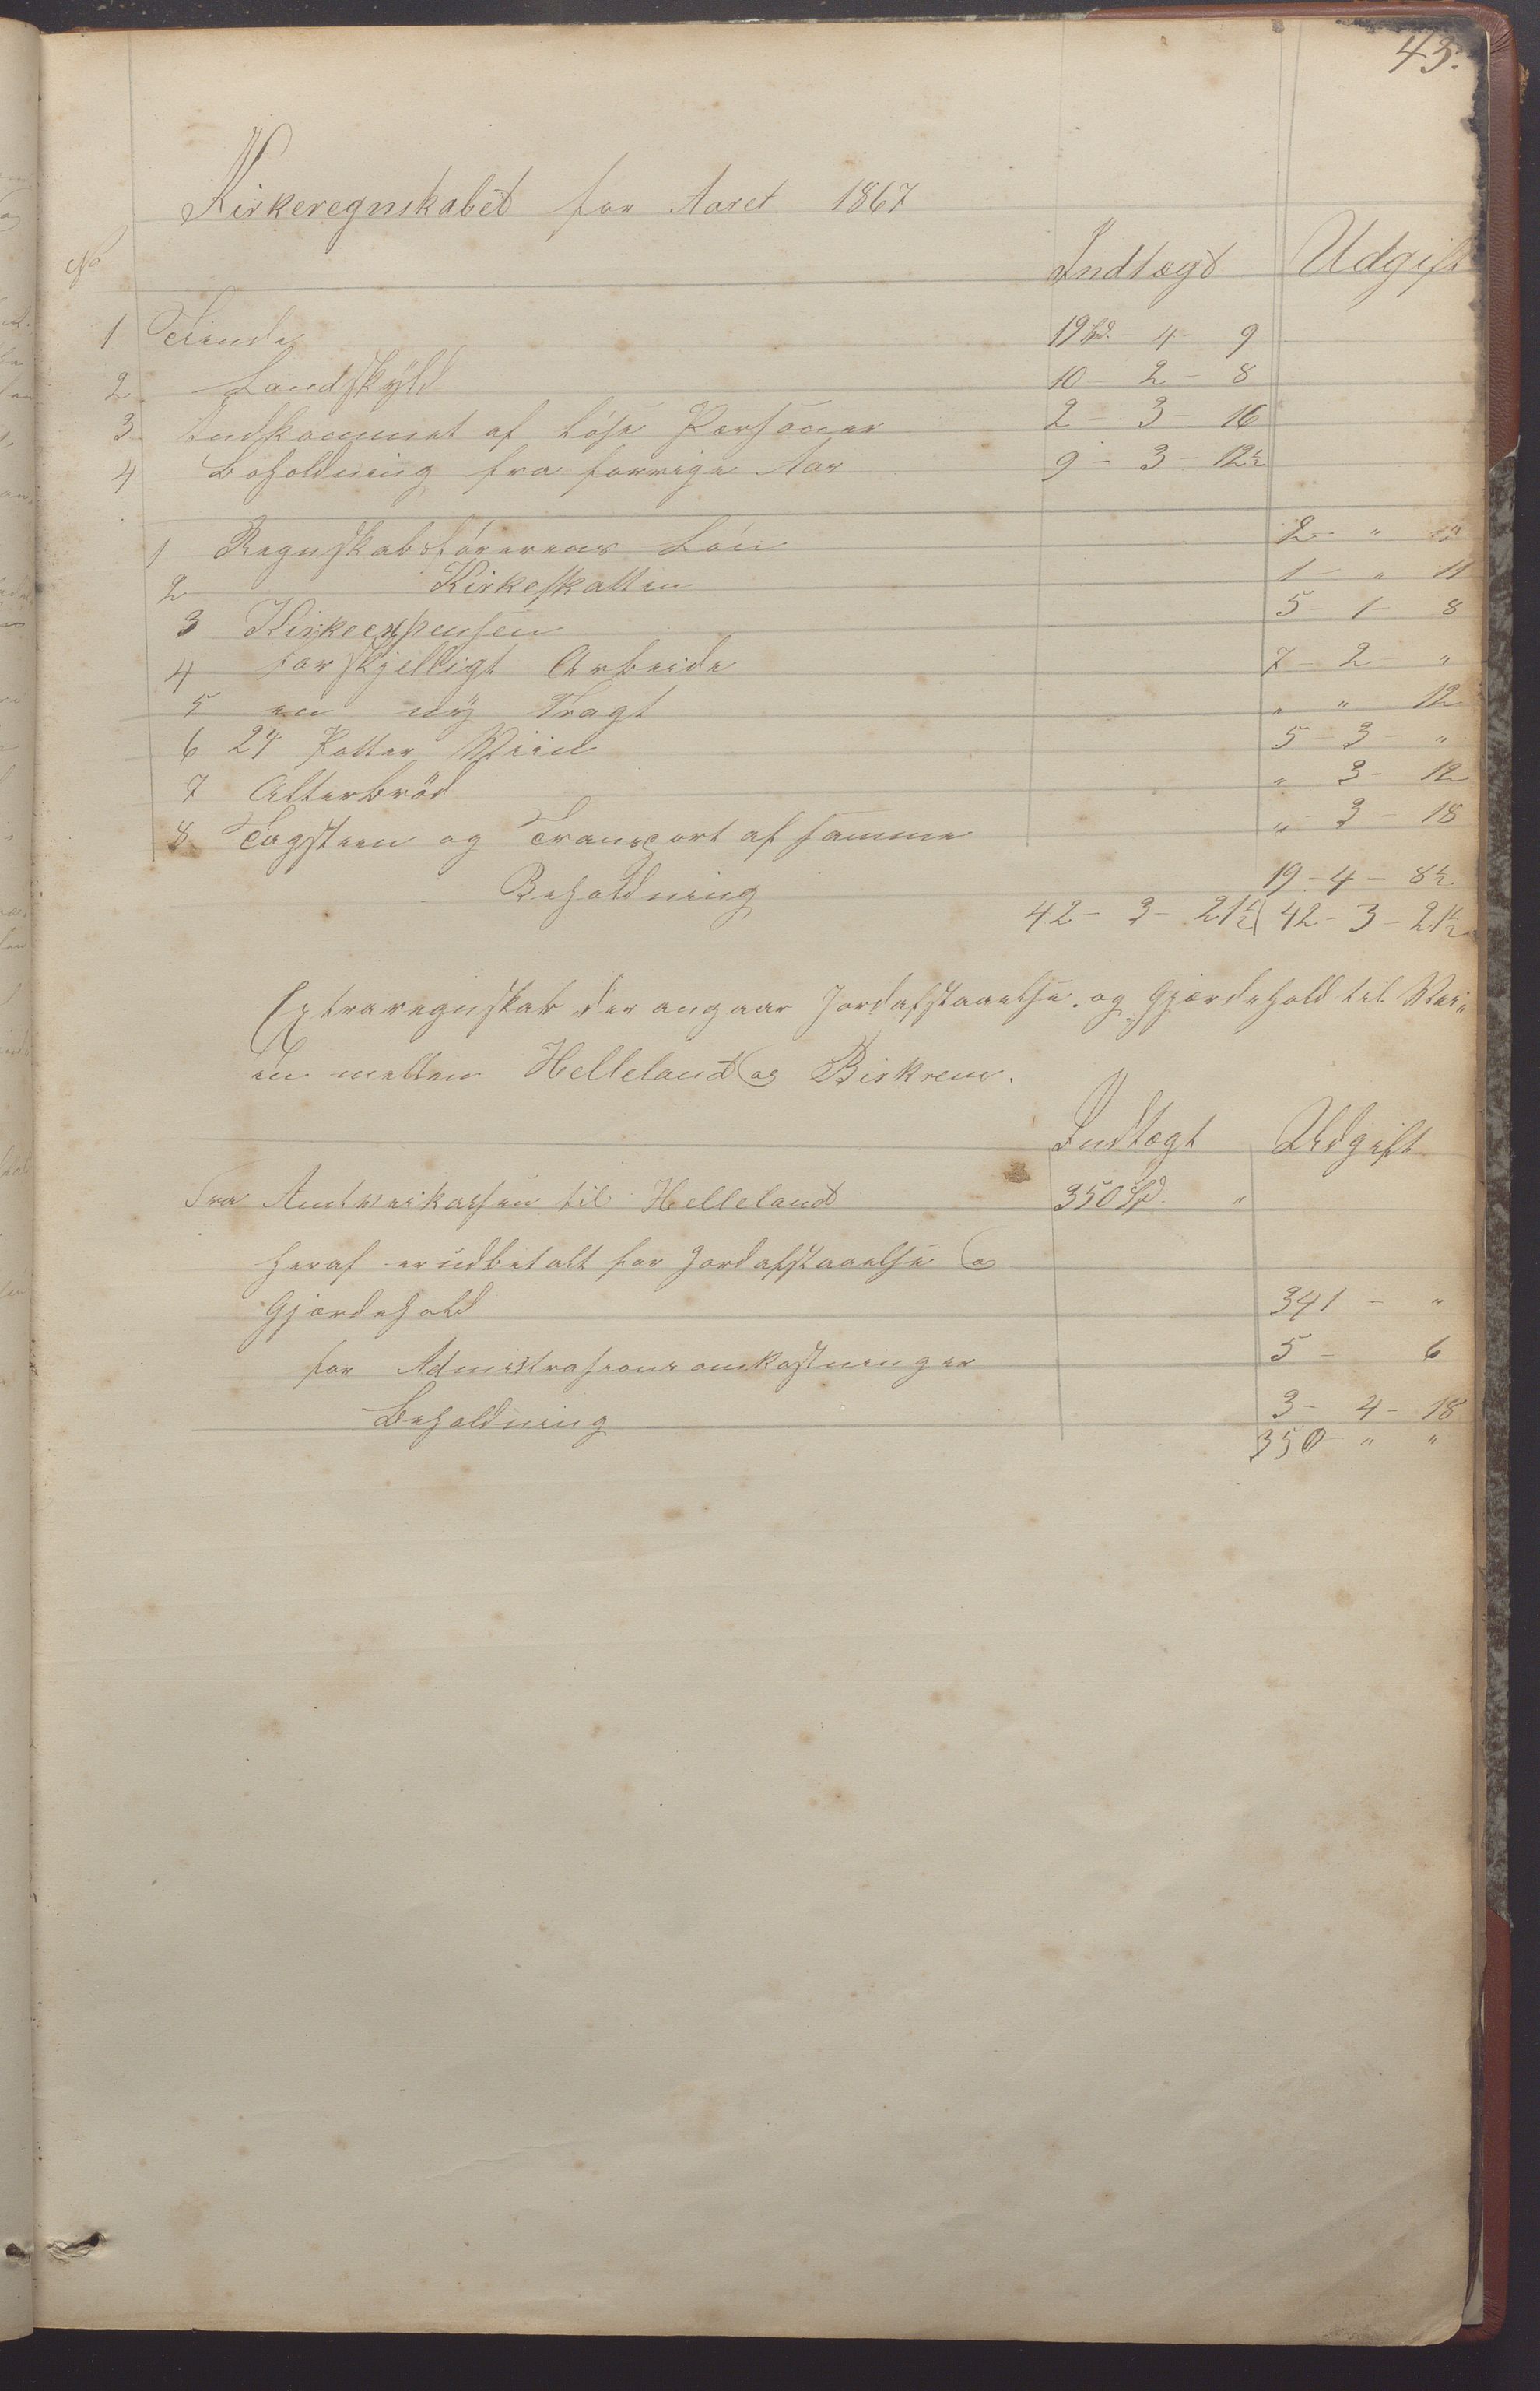 43.
Kirkeregnskabet for Aaret 1867
No Indtægt Udgift
1 Tiende 19 Spd. - 4 - 9
2 Landskÿld 10 - 2 - 8
3 Indkommet af löse Personer 2 - 3 - 16
4 Beholdning fra forrige Aar 9 - 3 - 12½
1 Regnskabsförerens Lön 2 - " "
2 Kirkeskatten 1 - " 11
3 Kirkeexpensen 5 - 1 - 8
4 forskjelligt Arbeide 7 - 2 "
5 en nÿ Tragt " " 12
6 24 Potter Viin 5 - 3 - "
7 Alterbröd " 3 - 12
8 Tagsteen og Transport af samme " - 3 - 18
Beholdning 19 - 4 - 8½
42 - 3 - 21½ 42 - 3 - 21½
Extraregnskab der angaar Jordafstaaelse og Gjærdehold til Vei"
en mellem Helleland og Birkrem.
Indtægt Udgift
Fra Amtveikassen til Helleland 350 Spd. "
heraf er udbetalt for Jordafstaaelse og
Gjærdehold 341 - "
for Admistrasionsomkostninger 5 - 6
Beholdning 3 - 4 - 18
350 - " "